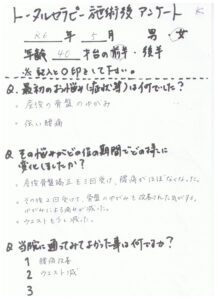 トータルセラピー施術後アンケート
K
R6 年 5 月 男 女
年齢 40 才台の前半・後半
※記入と○印をして下さい。
Q. 最初のお悩み(症状等)は何でしたか?
・産後の骨盤のゆがみ
・強い腰痛
Q. そのお悩みがどの位の期間でどの様に
変化しましたか?
・産後骨盤矯正を3回受け、腰痛がほぼなくなった。
・その後2回受けて、骨盤のゆがみも改善された気がする。
ゆがみによる痛みが減った。
・ウエストもすこし減った。
Q. 当院に通ってみてよかった事は何ですか?
1 腰痛改善
2 ウエスト減
3